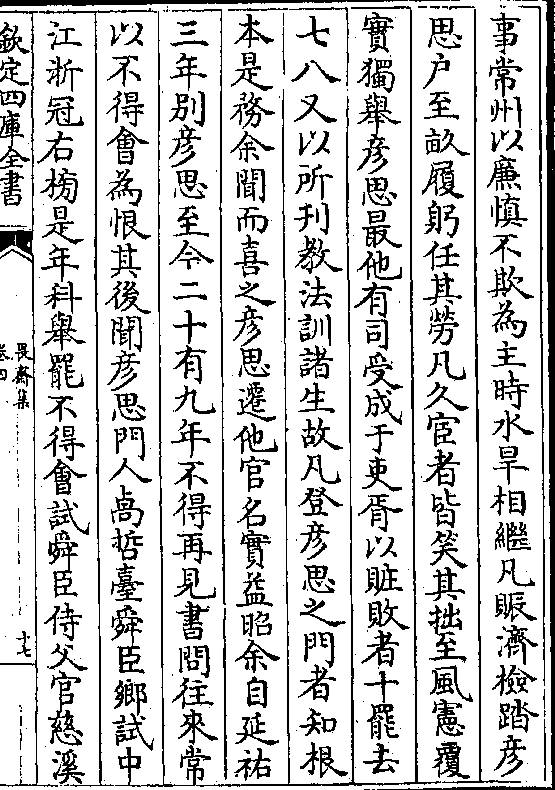 事常州以廉慎不欺為主時水旱相繼凡賑濟檢踏彦
思户至畝履躬任其勞凡久宦者皆笑其拙至風憲覆
實獨舉彦思最他有司受成于吏胥以賍敗者十罷去
七八又以所刊教法訓諸生故凡登彦思之門者知根
本是務余聞而喜之彦思遷他官名實益昭余自延祐
三年别彦思至今二十有九年不得再見書問往來常
以不得會為恨其後聞彦思門人卨哲臺舜臣鄉試中
江浙冠右榜是年科舉罷不得會試舜臣侍父官慈溪
欽定四庫全書
畏齋集
卷四
十七